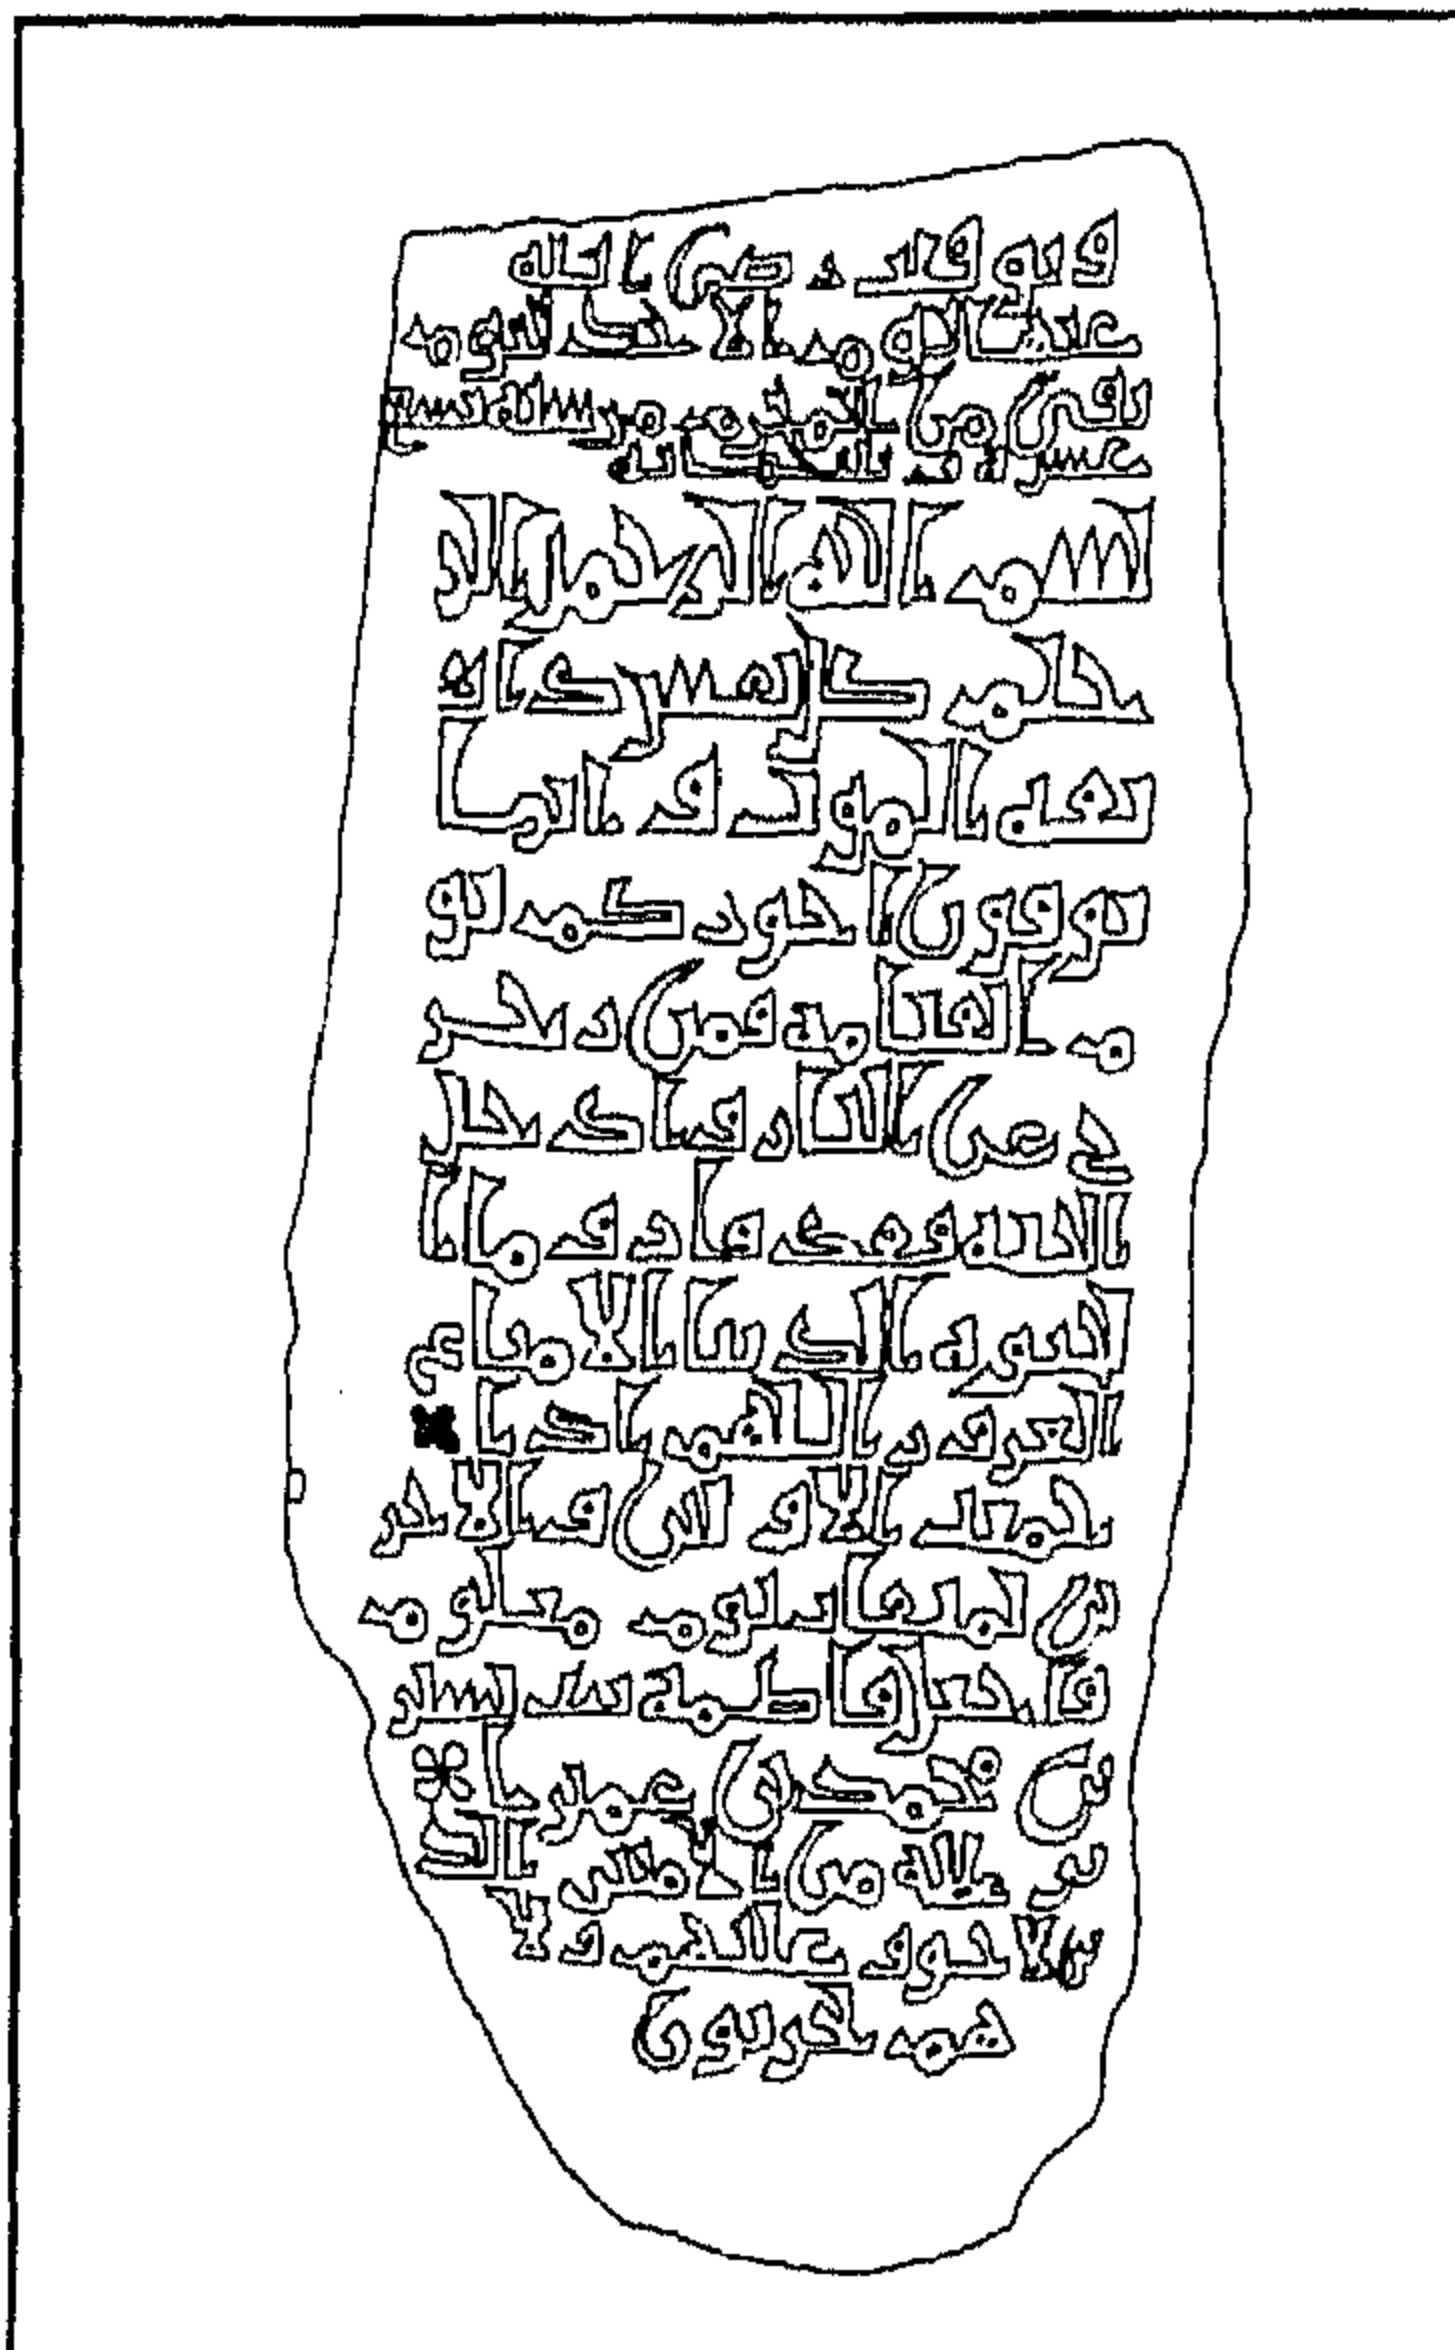 وتوفيت رضي الله
عنها يوم الاحد ليوم
بقي من المحرم من سنة
عشر
بسم الله الرحمن الر
حيم كل نفس ذا
ئقة الموت وانما
توفون اجوركم يو
م القيامة فمن زحز
ح عن النار وادخل
الجنة فقد فاز وما ا
لحيوة الدنيا الا متاع
الغرور اللهم اذا
جمعت الاولين والاخر
ين لميقات يوم معلوم
فاجعل فاطمة بنت
بن محمد بن
من الامنين الذ
ين لا خوف عليهم ولا
هم يحزنون